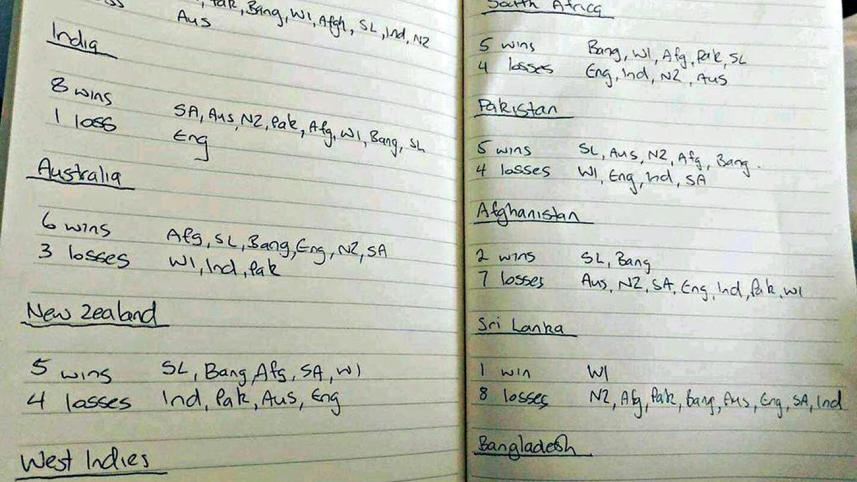 Pak, Bang, WI, Afgh, SL, Ind, NZ
Aus
India
8 wins SA, Aus, NZ, Pak, Afg, WI, Bang, SL
1 loss Eng
Australia
6 wins Afg, SL, Bang, Eng, NZ, SA
3 losses WI, Ind, Pak
New Zealand
5 wins SL, Bang, Afg, SA, WI
4 losses Ind, Pak, Aus, Eng
West Indies
South Africa
5 wins Bang, WI, Afg, Pak, SL
4 losses Eng, Ind, NZ, Aus
Pakistan
5 wins SL, Aus, NZ, Afg, Bang.
4 losses WI, Eng, Ind, SA
Afghanistan
2 wins SL, Bang
7 losses Aus, NZ, SA, Eng, Ind, Pak, WI
Sri Lanka
1 win WI
8 losses NZ, Afg, Pak, Bang, Aus, Eng, SA, Ind
Bangladesh